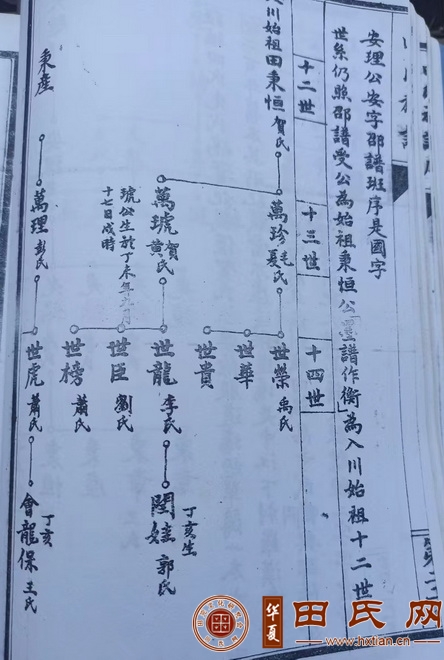 安理公安字邵譜班序是國字
世系仍照邵譜受公為始祖秉恒公「臺譜作衡」為入川始祖十二世
十二世
十三世
十四世
入川始祖田秉恒 賀氏
萬珍 毛氏 夏氏
世榮 禹氏
世華
世貴
萬琥 賀氏 黄氏
琥公生於丁未年
十七日戌時
世龍 李氏
閏娃 郭氏
丁亥生
世臣 劉氏
世榜 蕭氏
秉產
萬理 彭氏
世虎 蕭氏
會龍保 王氏
丁亥
華夏
田氏网
www.hxtian.cn